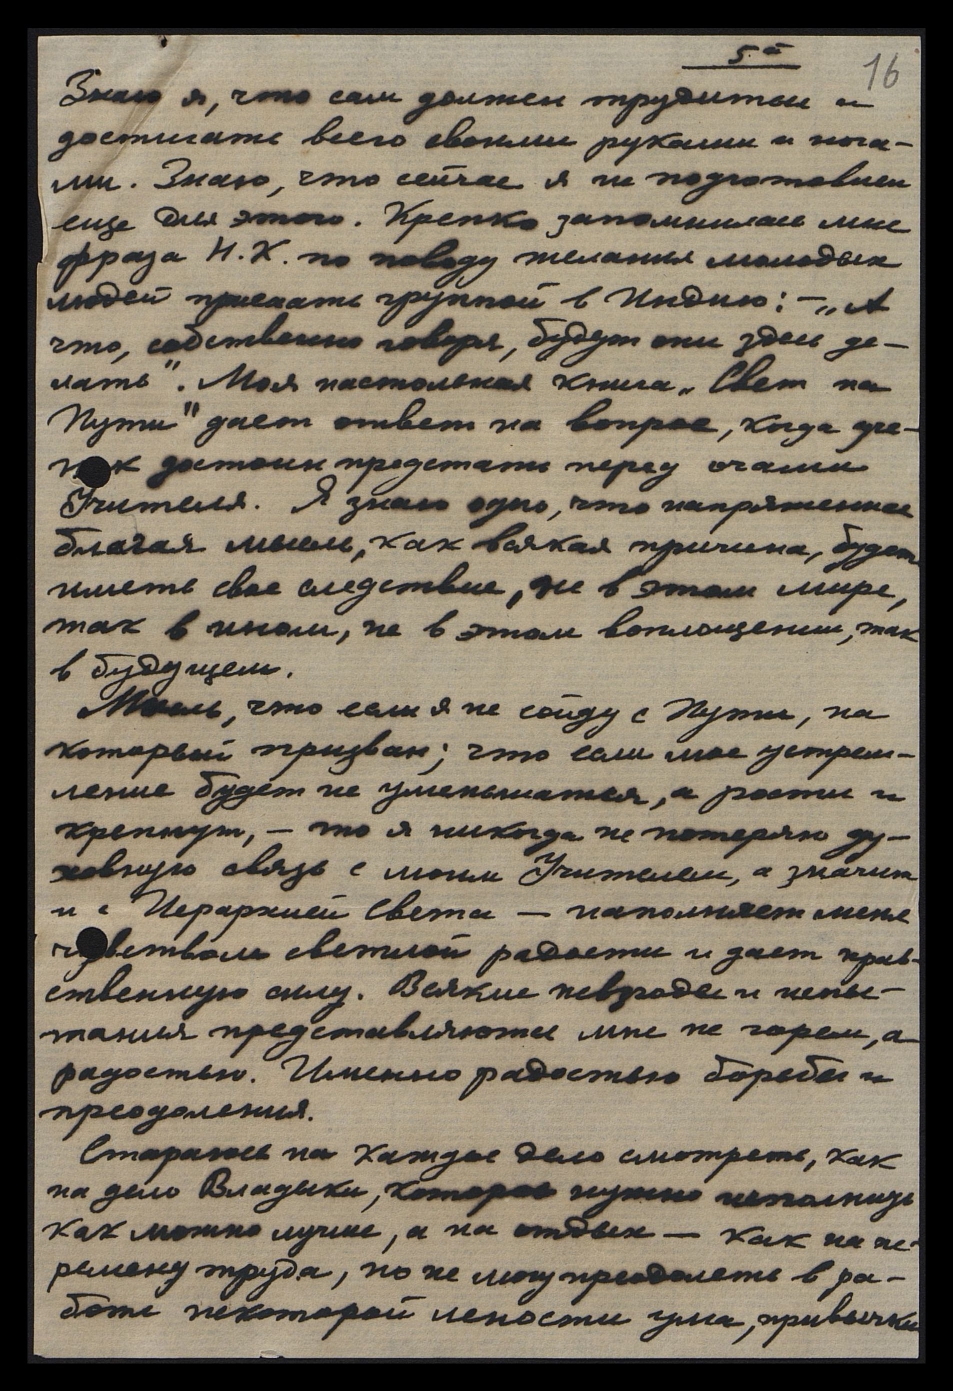 5-й
16
Знаю я, что сам должен трудиться и
достигать всего своими руками и нога-
ми. Знаю, что сейчас я не подготовлен
еще для этого. Крепко запомнилась мне
фраза Н.К. по поводу желания молодых
людей приехать группой в Индию: – „А
что, собственно говоря, будут они здесь де-
лать". Моя настольная книга „Свет на
Пути" дает ответ на вопрос, когда уче-
ник достоин предстать перед очами
Учителя. Я знаю одно, что напряженная
благая мысль, как всякая причина, будет
иметь свое следствие, не в этом мире,
так в ином, не в этом воплощении, так
в будущем.
Мысль, что если я не сойду с Пути, на
который призван; что если мое устрем-
ление будет не уменьшаться, а расти и
крепнуть, – то я никогда не потеряю ду-
ховную связь с моим Учителем, а значит
и с Иерархией Света – наполняет меня
чувством светлой радости и дает нрав-
ственную силу. Всякие невзгоды и испы-
тания представляются мне не горем, а
радостью. Именно радостью борьбы и
преодоления.
Стараюсь на каждое дело смотреть, как
на дело Владыки, которое нужно исполнить
как можно лучше, а на отдых – как на пе-
ремену труда, но не могу преодолеть в ра-
боте некоторой лености ума, привычки